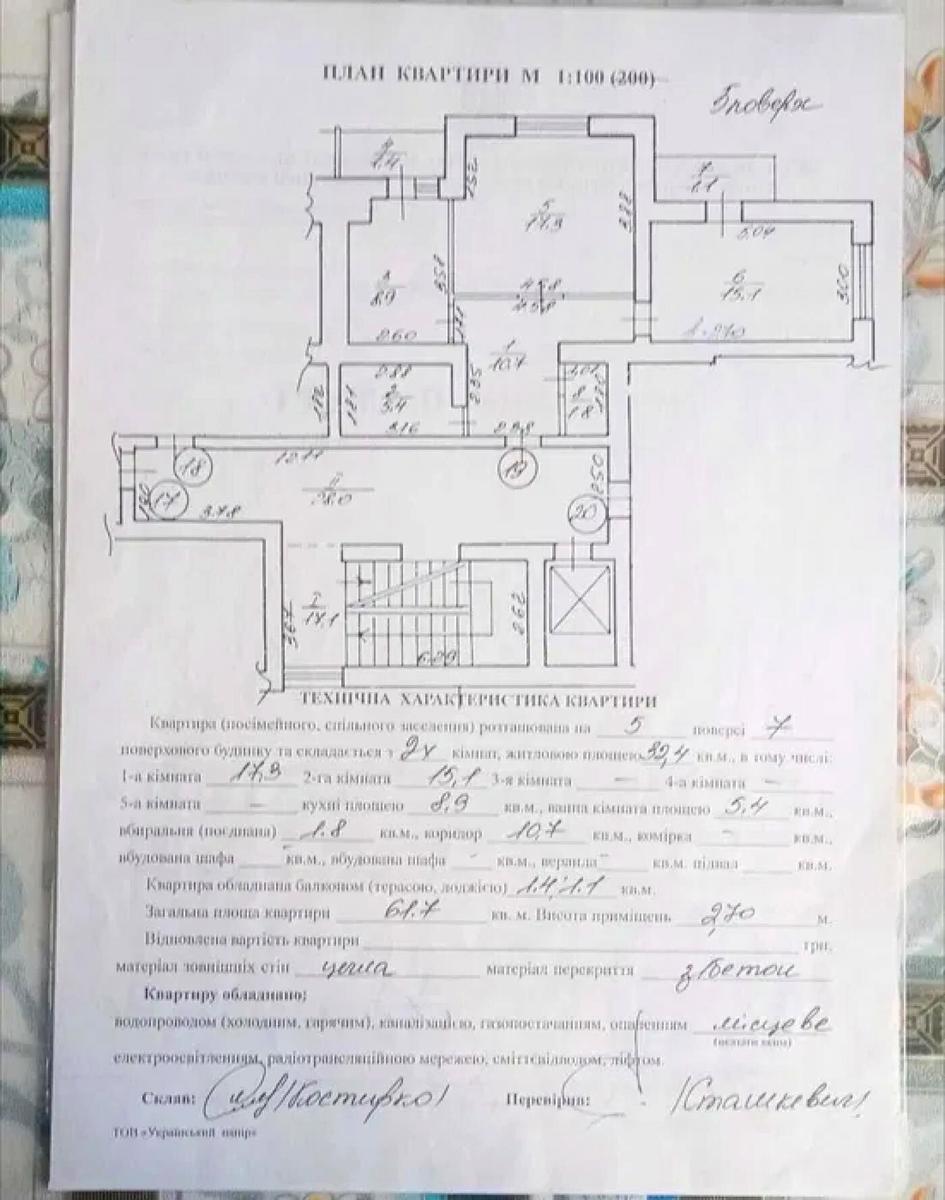 ПЛАН КВАРТИРИ М 1:100 (200)
5 поверх
4
1.4
7
1.1
152
5
17.3
382
5,04
3
8.9
358
6
15.1
300
458
458
2.60
h-270
1
10.7
2.88
2
5.4
182
181
235
1,01
8
1.8
3.16
298
12.11
18
17
19
20
II
28.0
250
190
3.78
I
17.1
367
262
6.29
ТЕХНІЧНА ХАРАКТЕРИСТИКА КВАРТИРИ
Квартира (посімейного, спільного заселення) розташована на 5 поверсі 7
поверхового будинку та складається з 2х кімнат, житловою площею 32,4 кв.м., в тому числі:
1-а кімната 17,3 2-га кімната 15,1 3-я кімната – 4-а кімната –
5-а кімната – кухні площею 8,9 кв.м., ванна кімната площею 5,4 кв.м.,
вбиральня (поєднана) 1.8 кв.м., коридор 10,7 кв.м., комірка – кв.м.,
вбудована шафа – кв.м., вбудована шафа – кв.м., веранда – кв.м. підвал кв.м.
Квартира обладнана балконом (терасою, лоджією) 1.4; 1.1 кв.м.
Загальна площа квартири 61.7 кв. м. Висота приміщень 2,70 м.
Відновлена вартість квартири грн.
матеріал зовнішніх стін цегла матеріал перекриття з/бетон
Квартиру обладнано:
водопроводом (холодним, гарячим), каналізацією, газопостачанням, опаленням місцеве
(вказати яким)
електроосвітленням, радіотрансляційною мережею, сміттєвідводом, ліфтом.
Склав: /Костирко/ Перевірив: /Сташкевич/
ТОВ «Український папір»